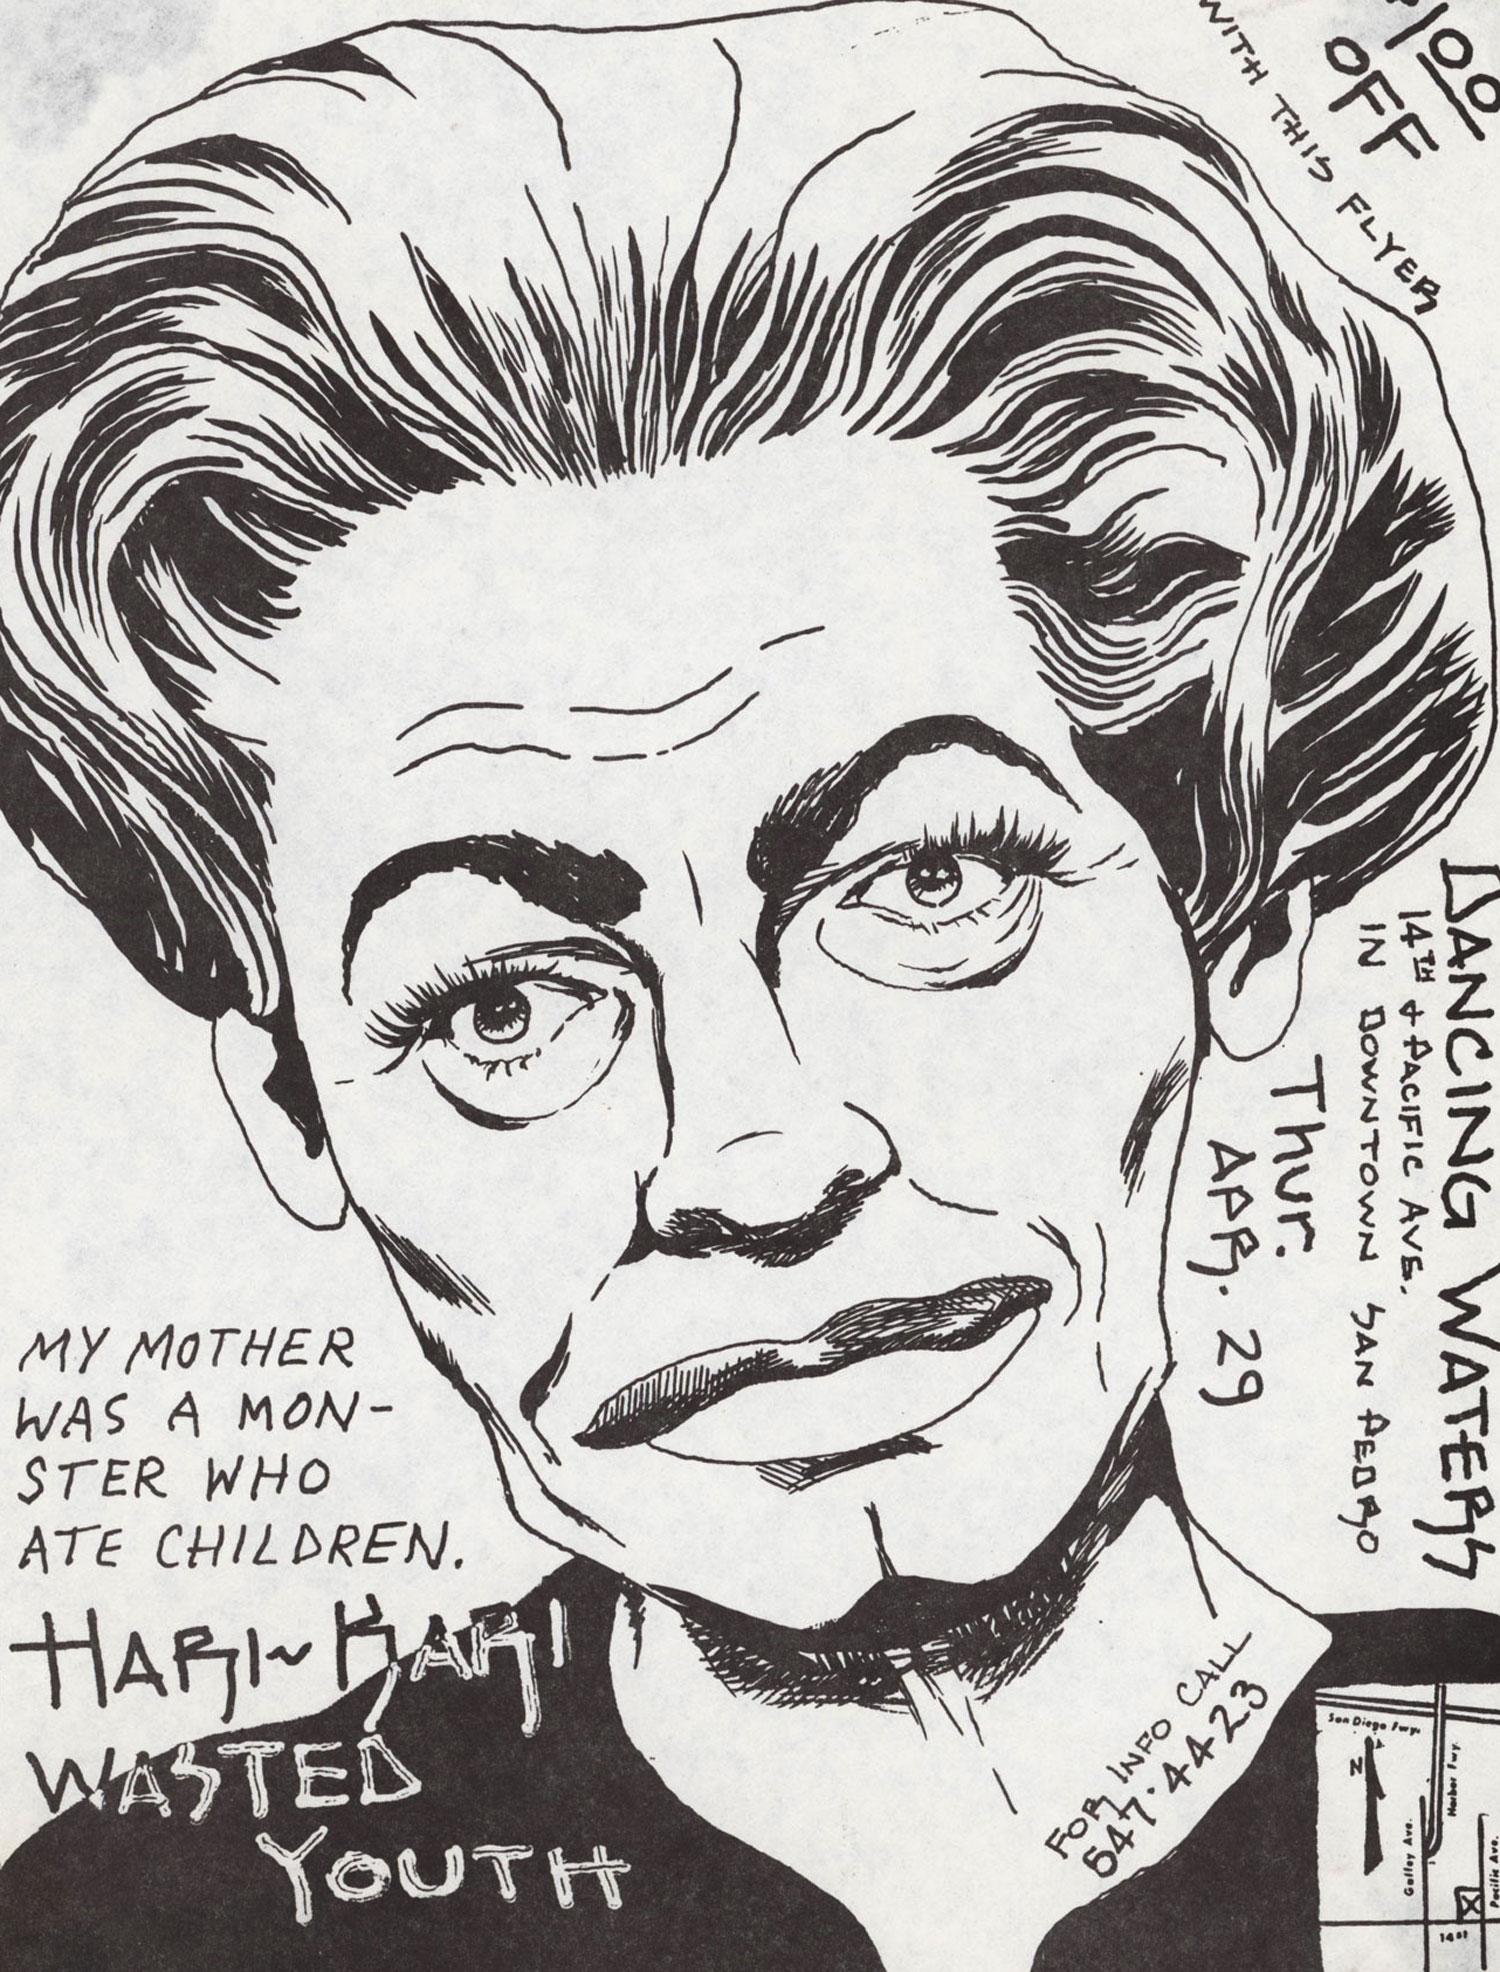 $1.00
OFF
WITH THIS FLYER
DANCING WATERS
14TH & PACIFIC AVE.
IN DOWNTOWN SAN PEDRO
Thur.
APR. 29
MY MOTHER
WAS A MON-
STER WHO
ATE CHILDREN.
HARI~KARI
WASTED
YOUTH
FOR INFO CALL
547·4423
San Diego Fwy.
N
Harbor Fwy.
Gaffey Ave.
Pacific Ave.
14st